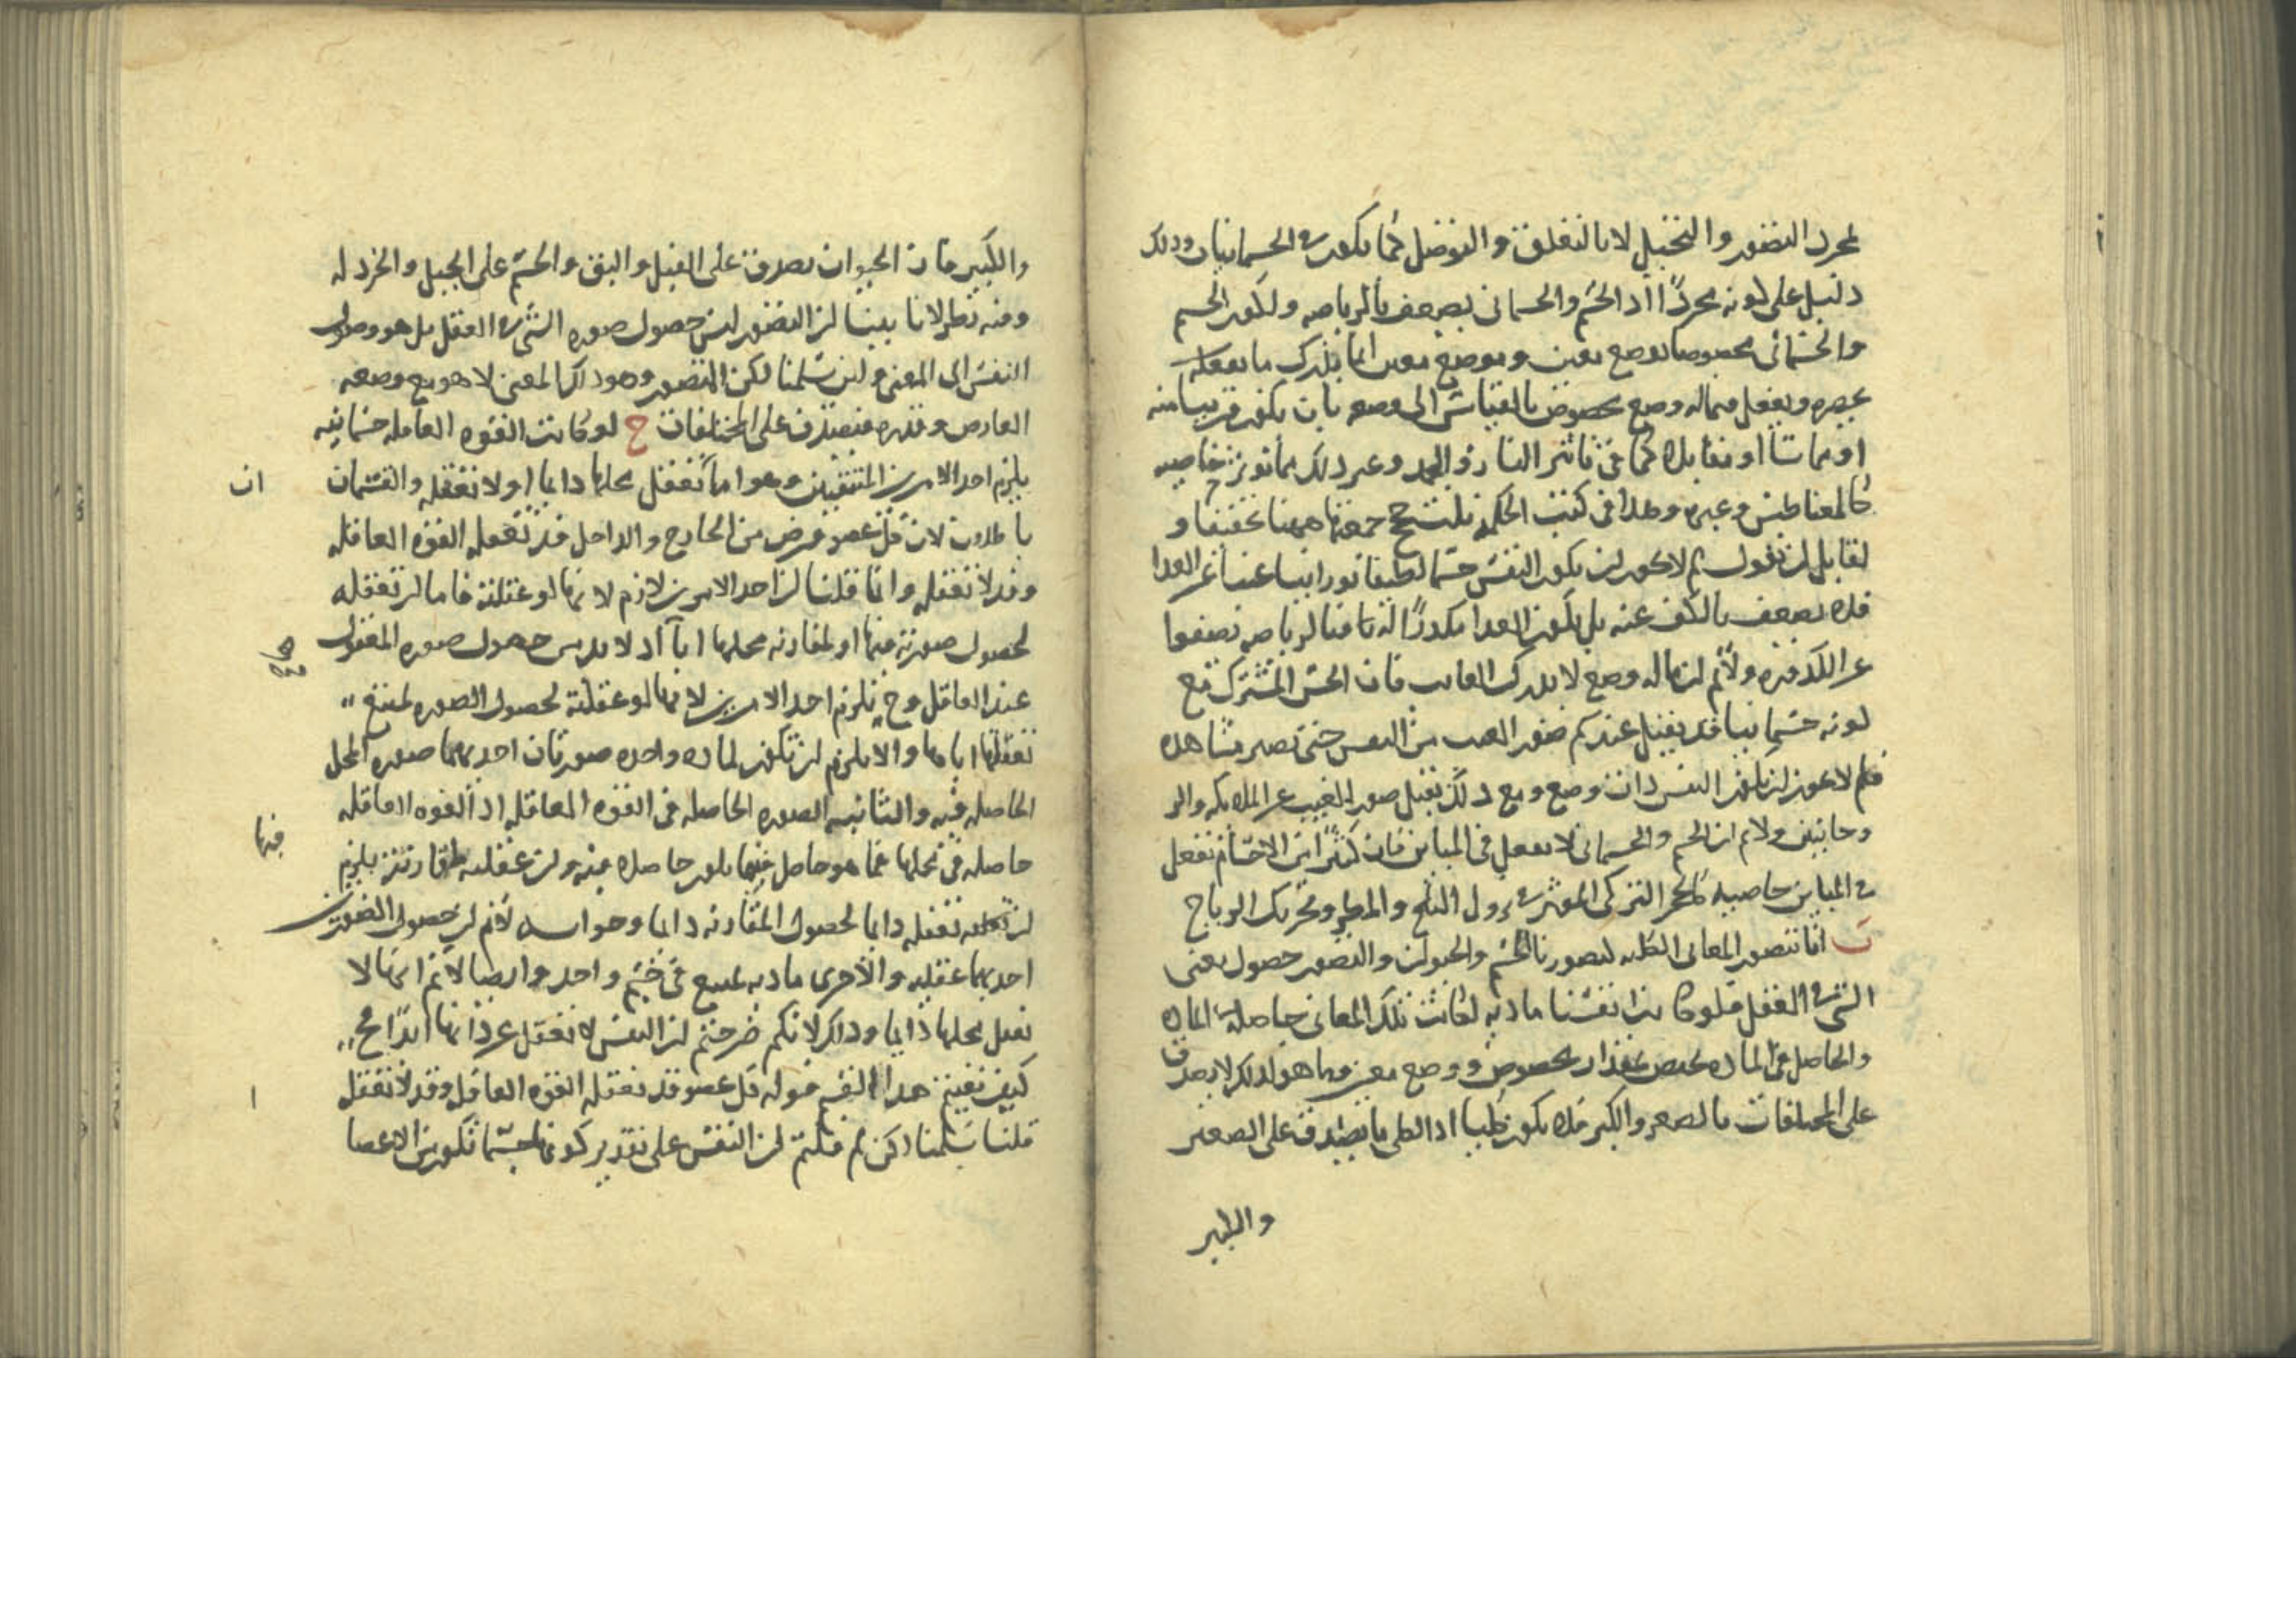 لمجرد التصور والتخيل لا بالتعلق والتوصل كما يكون في الجسمانيات وذلك
دليل على كونه مجردا اذ الجسم والجسمانى يضعف بالرياضه ولكون الجسم
والجسمانى مخصوصا بوضع معين وموضع معين انما يدرك ما يفعله
بغيره ويفعل فيما له وضع مخصوص بالقياس الى وضعه بان يكون قريبا منه
او مماسا او مقابله كما فى تاثير النار والجمد وغير ذلك مما تؤثر خاصيه
كالمغناطيس وغيره وهذا فى كتب الحكمه
لقايل ان يقول لم لا يجوز ان يكون النفس جسما لطيفا نورانيا غنيا عن الغذا
فلا يضعف بالكف عنه بل يكون الغذا مكدرا له نافيا لرياضه تصفوا
عن الكدوره ولانم ان ما له وضع لا يدرك الغايب فان الحس المشترك مع
كونه جسمانيا قد يقبل عندكم صور الغيب من النفس حتى تصير مشاهده
فلم لا يجوز ان يكون النفس ذات وضع ومع ذلك يقبل صور الغيب عن الملايكه والر
وحانيين ولانم ان الجسم والجسمانى لا يفعل فى المباين فان كثيرا من الاجسام تفعل
فى المباين خاصيه كالحجر التركى المؤثر فى نزول الثلج والمطر وتحريك الرياح
ب انا نتصور المعانى الكليه كتصورنا الجسم والحيوان والتصور حصول معنى
الشى فى العقل فلو كانت انفسنا ماديه لكانت تلك المعانى حاصله فى الماده
والحاصل فى الماده يختص بمقدار مخصوص ووضع معين وما هو كذلك لا يصدق
على المختلفات بالصغر والكبر فلا يكون كليا اذ الكلى ما يصدق على الصغير
والكبير
والكبير فان الحيوان يصدق على الفيل والبق والجسم على الجبل والخردله
وفيه نظر لانا بينا ان التصور ليس حصول صوره الشى فى العقل بل هو وصول
النفس الى المعنى ولين سلمنا لكن المتصور وهو ذلك المعنى لا هو مع وضعه
العارض وقدره فيصدق على المختلفات ج لو كانت القوه العاقله جسمانيه
يلزم احد الامرين المنتفيين وهو اما تعقل محلها دايما او لا تعقله والقسمان
باطلان لان كل عضو فرض من الخارج والداخل قد تعقله القوه العاقله
وقد لا تعقله وانما قلنا ان احد الامرين لازم لانها لو عقلته فاما ان تعقله
لحصول صورته فيها او لمقارنه محلها اياها اذ لا بد من حصول صوره المعقول
عند العاقل وح يلزم احد الامرين لانها لو عقلته لحصول الصوره لمتنع
تعقلها اياها والا يلزم ان تكون لماده واحده صورتان احديهما صوره المحل
الحاصله فيه والثانيه الصوره الحاصله فى القوه العاقله اذ القوه العاقله
حاصله فى محلها فما هو حاصل فيها يكون حاصلا فيه وان عقلته لمقارنته يلزم
ان تعقله دايما لحصول المقارنه دايما وجوابه لانم ان حصول الصورتين
احديهما عقليه والاخرى ماديه يمتنع فى جسم واحد وايضا لانم انها لا
تعقل محلها دايما وذلك لانكم صرحتم ان النفس لا تعقل عن ذاتها ابدا فح
كيف يتعين هذا القسم قوله كل عضو قد تعقله القوه العاقله وقد لا تعقله
قلنا سلمنا لكن لم قلتم ان النفس على تقدير كونها جسما تكون من الاعضا
ان
فيها
ا